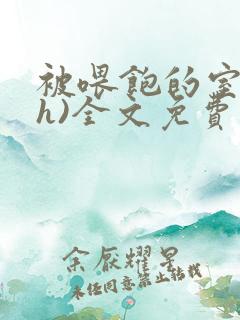 被喂飽的室
h)全文免費
余厭耀星
未经同意禁止转载